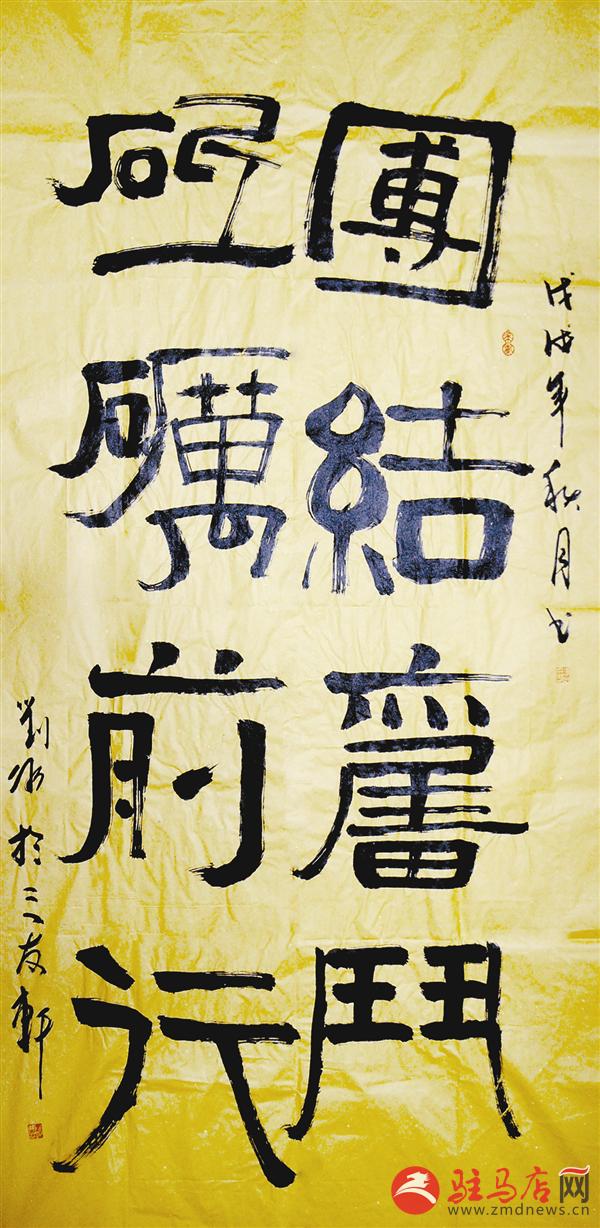 戊戌年秋月书
團結奮鬥
砥礪前行
劉冰於三友軒
驻马店网
www.zmdnews.cn